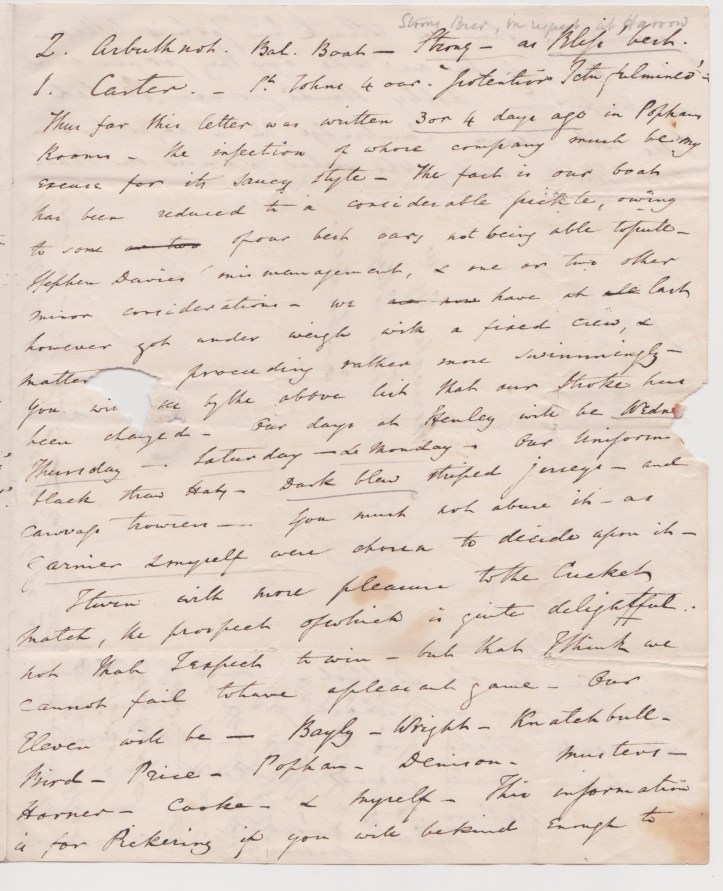 Strong Beer, in request at Harrow
2. Arbuthnot. Bal. Boat – Strong – as Bless' best.
1. Carter. – St Johns 4 oar. "
Thus far this letter was written 3 or 4 days ago in Pophams
Rooms – the infection of whose company must be my
excuse for its saucy style – The fact is our boat
has been reduced to a considerable pickle, owing
to some or two of our best oars not being able to pull –
Stephen Davies' mismanagement, & one or two other
minor considerations – we have at last
however got under weigh with a fixed crew, &
matter proceeding rather more swimmingly –
You wi see by the above list that our Stroke has
been changed – Our days at Henley will be Wedne
Thursday – Saturday – & Monday – Our Uniform
black straw Hats – Dark blew striped jerseys – and
canvass trowsers – You must not abuse it – as
Garnier & myself were chosen to decide upon it –
I turn with more pleasure to the Cricket
match, the prospect of which is quite delightful.
not that I expect to win – but that I think we
cannot fail to have a pleasant game – Our
Eleven will be – Bayly – Wright – Knatchbull –
Bird – Price – Popham – Denison – Musters –
Horner – Cooke – & myself – This information
is for Pickering if you will be kind enough to